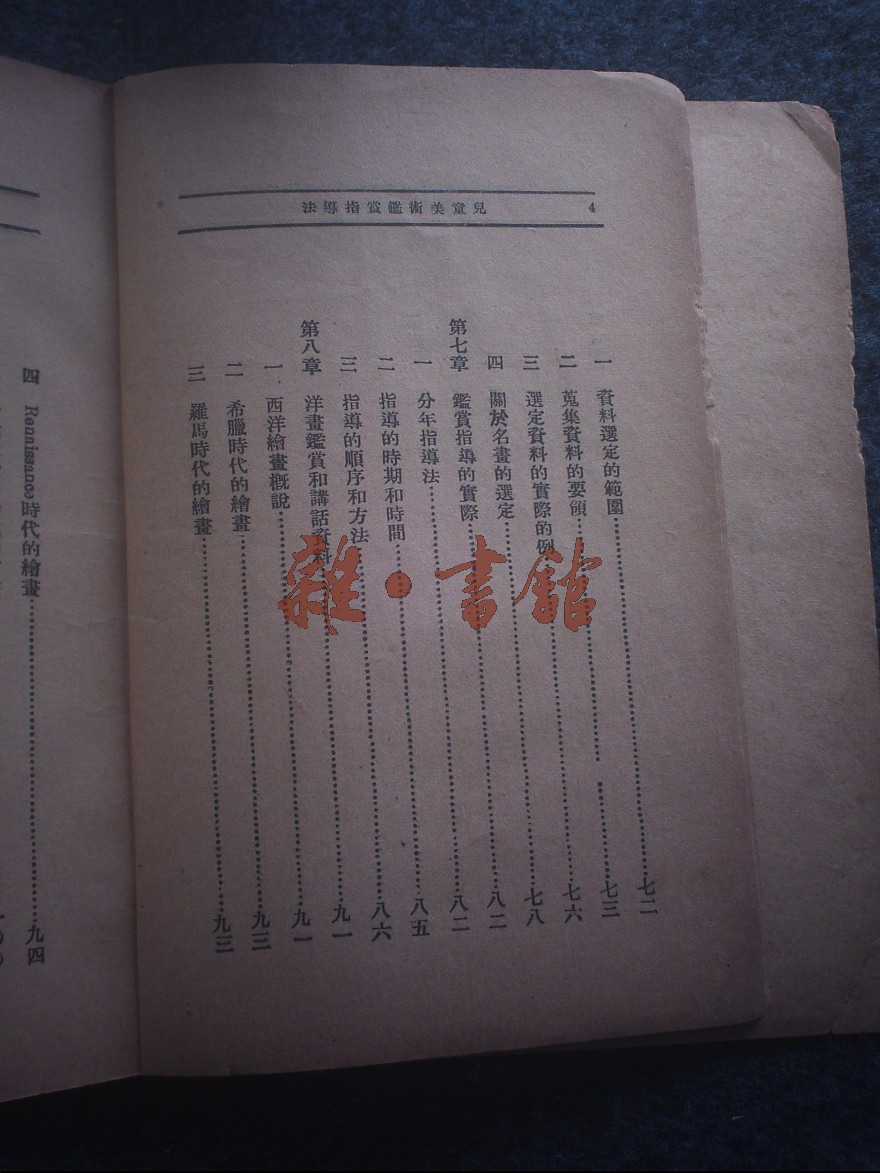 4 兒童美術鑑賞指導法
一 資料選定的範圍……七二
二 蒐集資料的要領……七三
三 選定資料的實際的例……七六
四 關於名畫的選定……七八
第七章 鑑賞指導的實際……八二
一 分年指導法……八二
二 指導的時期和時間……八五
三 指導的順序和方法……八六
第八章 洋畫鑑賞和講話資料……九一
一 西洋繪畫概說……九一
二 希臘時代的繪畫……九三
三 羅馬時代的繪畫……九三
四 Renaissance時代的繪畫……九四
雜·書舘